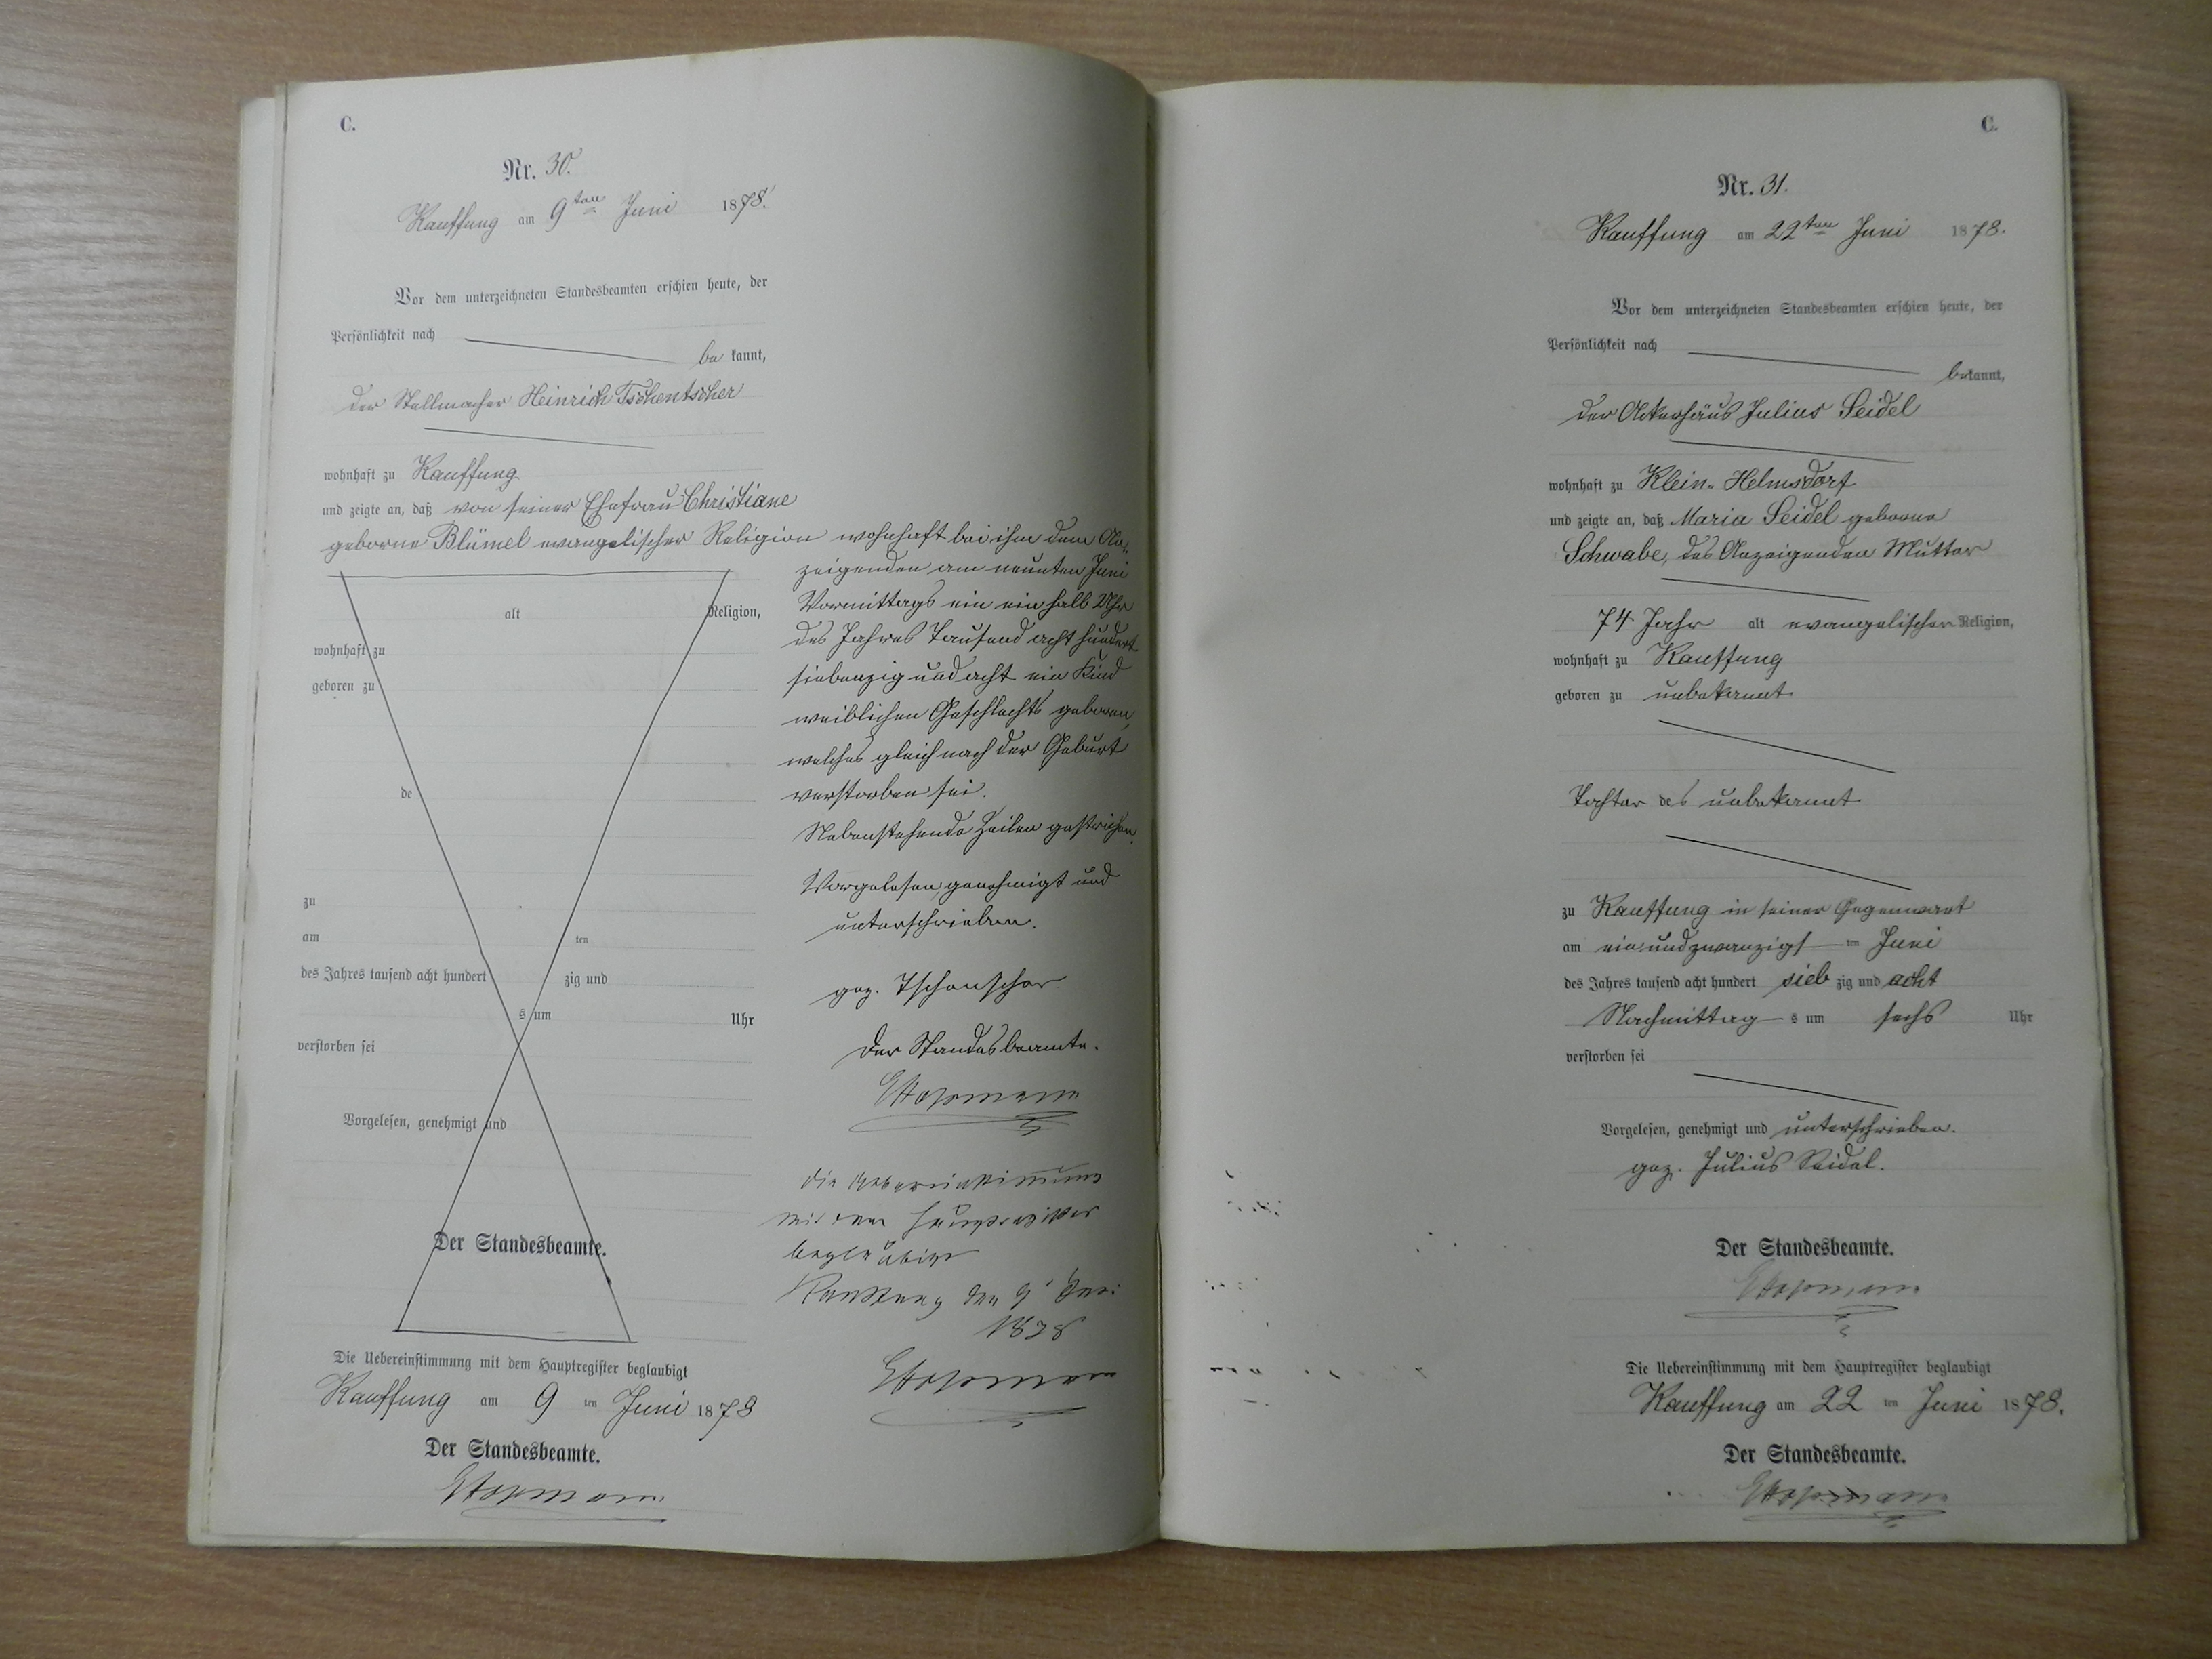 C.
Nr. 30.
Kauffung am 9ten Juni 1878.
Vor dem unterzeichneten Standesbeamten erschien heute, der
Persönlichkeit nach
be kannt,
der Stellmacher Heinrich Tschentscher
wohnhaft zu Kauffung
und zeigte an, daß von seiner Ehefrau Christiane
geborne Blümel evangelischer Religion wohnhaft bei ihm dem An-
zeigenden am neunten Juni
Vormittags ein ein halb Uhr
des Jahres Tausend acht hundert
siebenzig und acht ein Kind
weiblichen Geschlechts geboren,
welches gleich nach der Geburt
verstorben sei.
Nebenstehende Zeilen gestrichen.
Vorgelesen, genehmigt und
unterschrieben.
gez. Tschenscher
Der Standesbeamte.
die Uebereinstimmung
mit dem Hauptregister
beglaubigt
Kauffung den 9 Juni
1878
alt Religion,
wohnhaft zu
geboren zu
de
zu
am ten
des Jahres tausend acht hundert zig und
s um Uhr
verstorben sei
Vorgelesen, genehmigt und
Der Standesbeamte.
Die Uebereinstimmung mit dem Hauptregister beglaubigt
Kauffung am 9 ten Juni 1878
Der Standesbeamte.
C.
Nr. 31.
Kauffung am 22ten Juni 1878.
Vor dem unterzeichneten Standesbeamten erschien heute, der
Persönlichkeit nach
bekannt,
der Ackerhäus Julius Seidel
wohnhaft zu Klein-Helmsdorf
und zeigte an, daß Maria Seidel geborne
Schwabe, des Anzeigenden Mutter
74 Jahr alt evangelischer Religion,
wohnhaft zu Kauffung
geboren zu unbekannt
Tochter des unbekannt
zu Kauffung in seiner Gegenwart
am ein und zwanzigs ten Juni
des Jahres tausend acht hundert sieb zig und acht
Nachmittag s um sechs Uhr
verstorben sei
Vorgelesen, genehmigt und unterschrieben.
gez. Julius Seidel.
Der Standesbeamte.
Die Uebereinstimmung mit dem Hauptregister beglaubigt
Kauffung am 22 ten Juni 1878.
Der Standesbeamte.